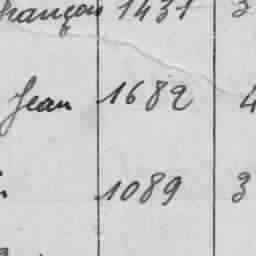 françois 1431 3
Jean 1682 4
1089 3